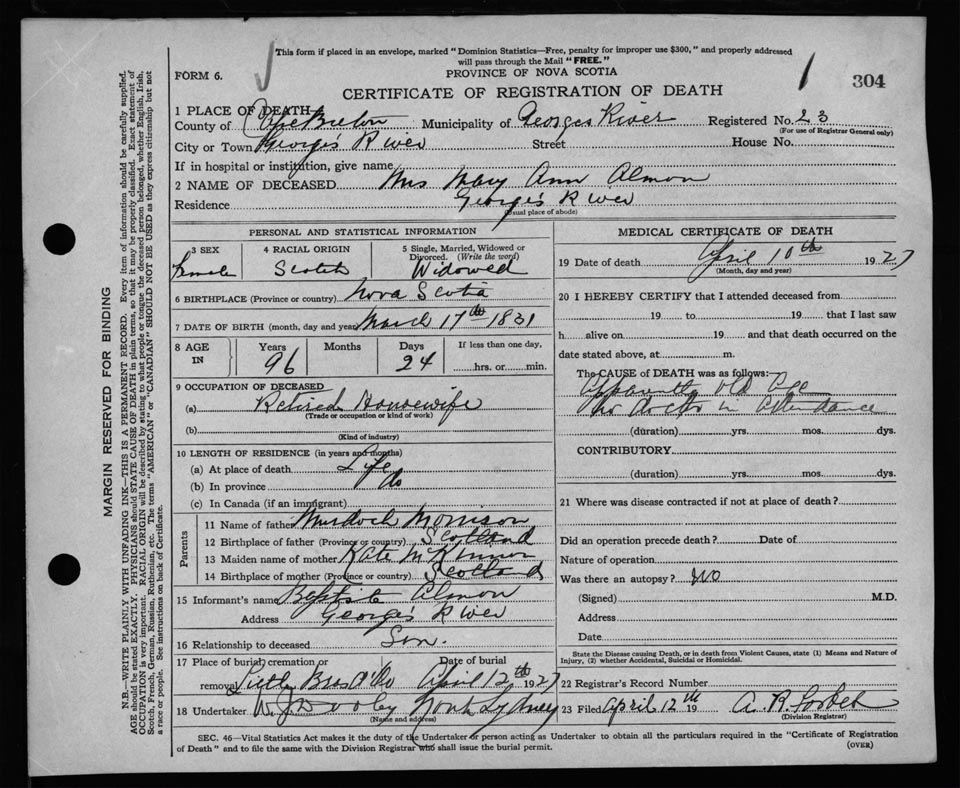 This form if placed in an envelope, marked "Dominion Statistics—Free, penalty for improper use $300," and properly addressed
will pass through the Mail "FREE."
FORM 6.
PROVINCE OF NOVA SCOTIA
1
304
CERTIFICATE OF REGISTRATION OF DEATH
1 PLACE OF DEATH
County of Cape Breton Municipality of Georges River Registered No. 23
(For use of Registrar General only)
City or Town Georges River Street House No.
If in hospital or institution, give name
2 NAME OF DECEASED Mrs Mary Ann Almon
Residence Georges River
(Usual place of abode)
PERSONAL AND STATISTICAL INFORMATION
3 SEX 4 RACIAL ORIGIN 5 Single, Married, Widowed or
Divorced. (Write the word)
Female Scotch Widowed
6 BIRTHPLACE (Province or country) Nova Scotia
7 DATE OF BIRTH (month, day and year) March 17th 1831
8 AGE IN Years Months Days If less than one day,
96 24 hrs. or min.
9 OCCUPATION OF DECEASED
(a) Retired Housewife
(Trade or occupation or kind of work)
(b)
(Kind of industry)
10 LENGTH OF RESIDENCE (in years and months)
(a) At place of death Life
(b) In province do
(c) In Canada (if an immigrant)
Parents
11 Name of father Murdoch Morrison
12 Birthplace of father (Province or country) Scotland
13 Maiden name of mother Kate McKinnon
14 Birthplace of mother (Province or country) Scotland
15 Informant's name Baptiste Almon
Address Georges River
16 Relationship to deceased Son.
17 Place of burial, cremation or Date of burial
removal Little Bras d'Or April 12th 1927
18 Undertaker W J Dooley North Sydney
(Name and address)
MEDICAL CERTIFICATE OF DEATH
19 Date of death April 10th 1927
(Month, day and year)
20 I HEREBY CERTIFY that I attended deceased from
19 to 19 that I last saw
h alive on 19 and that death occurred on the
date stated above, at m.
The CAUSE OF DEATH was as follows:
Apparently Old Age
No doctor in attendance
(duration) yrs. mos. dys.
CONTRIBUTORY
(duration) yrs. mos. dys.
21 Where was disease contracted if not at place of death?
Did an operation precede death? Date of
Nature of operation
Was there an autopsy? No
(Signed) M.D.
Address
Date
State the Disease causing Death, or in death from Violent Causes, state (1) Means and Nature of
Injury, (2) whether Accidental, Suicidal or Homicidal.
22 Registrar's Record Number
23 Filed April 12th 19 A. R.
(Division Registrar)
SEC. 46—Vital Statistics Act makes it the duty of the Undertaker or person acting as Undertaker to obtain all the particulars required in the "Certificate of Registration
of Death" and to file the same with the Division Registrar who shall issue the burial permit.
(OVER)
MARGIN RESERVED FOR BINDING
N.B.—WRITE PLAINLY WITH UNFADING INK—THIS IS A PERMANENT RECORD. Every item of information should be carefully supplied.
AGE should be stated EXACTLY. PHYSICIANS should STATE CAUSE OF DEATH in plain terms, so that it may be properly classified. Exact statement of
OCCUPATION is very important. RACIAL ORIGIN will be described by stating to what people or tongue the deceased person belonged, whether English, Irish,
Scotch, French, German, Russian, Ruthenian, etc. The terms "AMERICAN" or "CANADIAN" SHOULD NOT BE USED as they express citizenship but not
a race or people. See instructions on back of Certificate.